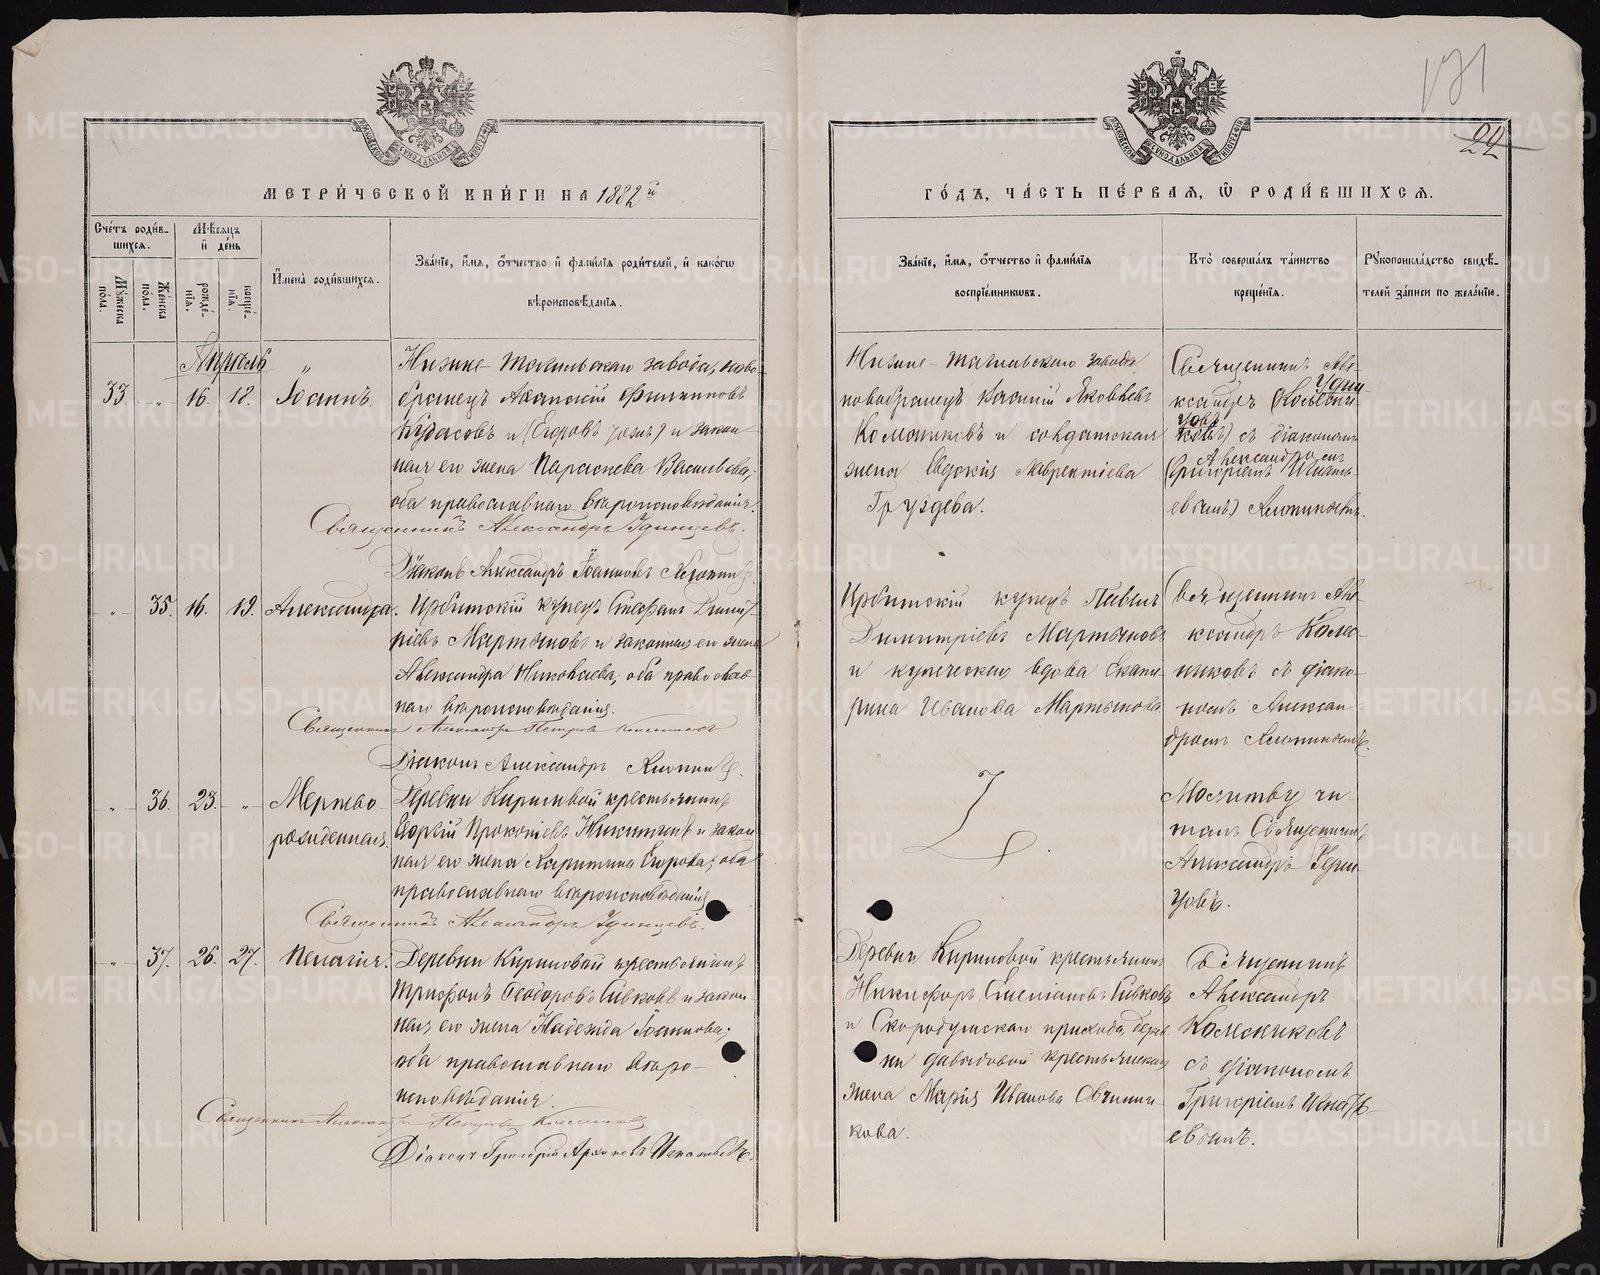 МЕТРИ́ЧЕСКОЙ КНИ́ГИ НА 1882й
Сче́тъ роди́в-
шихся.
Му́жеска
по́ла.
Же́нска
по́ла.
Мѣ́сяцъ
и҆ де́нь
рожде́-
нїя.
креще́-
нїя.
И҆мена̀ роди́вшихся.
Зва́нїе, и҆́мя, ѻ҆́тчество и҆ фами́лїя роди́телей, и҆ како́гѡ
вѣроисповѣ́данїя.
Апрѣль
33 „ 16. 18. Іоаннъ.
Нижне-Тагильскаго завода, ново-
бранецъ Филипповъ
Кудасовъ и (Егоровъ тожъ) и закон-
ная его жена Параскева Васильева;
оба православнаго вѣроисповѣданія.
Священникъ Александръ Удинцевъ.
Діаконъ Александръ Іоанновъ
„ 35. 16. 19. Александра.
Ирбитскій купецъ Стефанъ Димит-
ріевъ Мартьяновъ и законная его жена
Александра Николаева; оба православ-
наго вѣроисповѣданія.
Священникъ Александръ Петровъ
Діаконъ Александръ
„ 36. 23. „ Мертво-
рожденная.
Деревни Кириловой крестьянинъ
Георгій Прокопіевъ Никитинъ и закон-
ная его жена Харитина Егорова; оба
православнаго вѣроисповѣданія.
Священникъ Александръ Удинцевъ.
„ 37. 26. 27. Пелагія.
Деревни Кириловой крестьянинъ
Трифонъ Ѳеодоровъ Сивковъ и закон-
ная его жена Надежда Іоаннова;
оба православнаго вѣро-
исповѣданія.
Священникъ Александръ Петровъ
Діаконъ Григорій Игнатьевъ.
131
22
ГО́ДЪ, ЧА́СТЬ ПЕ́РВАЯ, Ѡ҆ РОДИ́ВШИХСЯ.
Зва́нїе, и҆́мя, ѻ҆́тчество и҆ фами́лїя
воспрїе́мникѡвъ.
Кто̀ соверша́лъ та́инство
креще́нїя.
Рꙋкоприкла́дство свидѣ́-
телей за́писи по жела́нїю.
Нижне-Тагильскаго завода
новобранецъ Яковлевъ
Колесниковъ и солдатская
жена Евдокія Лаврентіева
Груздева.
Священникъ Але-
ксандръ (Колесни-
Удин
цовъ
ковъ) съ діакономъ
Александромъ
(Григоріемъ Игнать-
евымъ)
Ирбитскій купецъ Павелъ
Димитріевъ Мартьяновъ
и купеческая вдова Екате-
рина Иванова Мартьянова
Священникъ Але-
ксандръ Колес-
никовъ съ діако-
номъ Алексан-
дромъ
Молитву чи-
талъ Священникъ
Александръ Удин-
цовъ.
Деревни Кириловой крестьянинъ
Никифоръ Степановъ Сивковъ
и Скородумскаго прихода, дерев-
ни Давыдовой крестьянская
жена Марія Иванова Овчинни-
кова.
Священникъ
Александръ
Колесниковъ
съ діакономъ
Григоріемъ Игнать-
евымъ.
METRIKI.GASO-URAL.RU